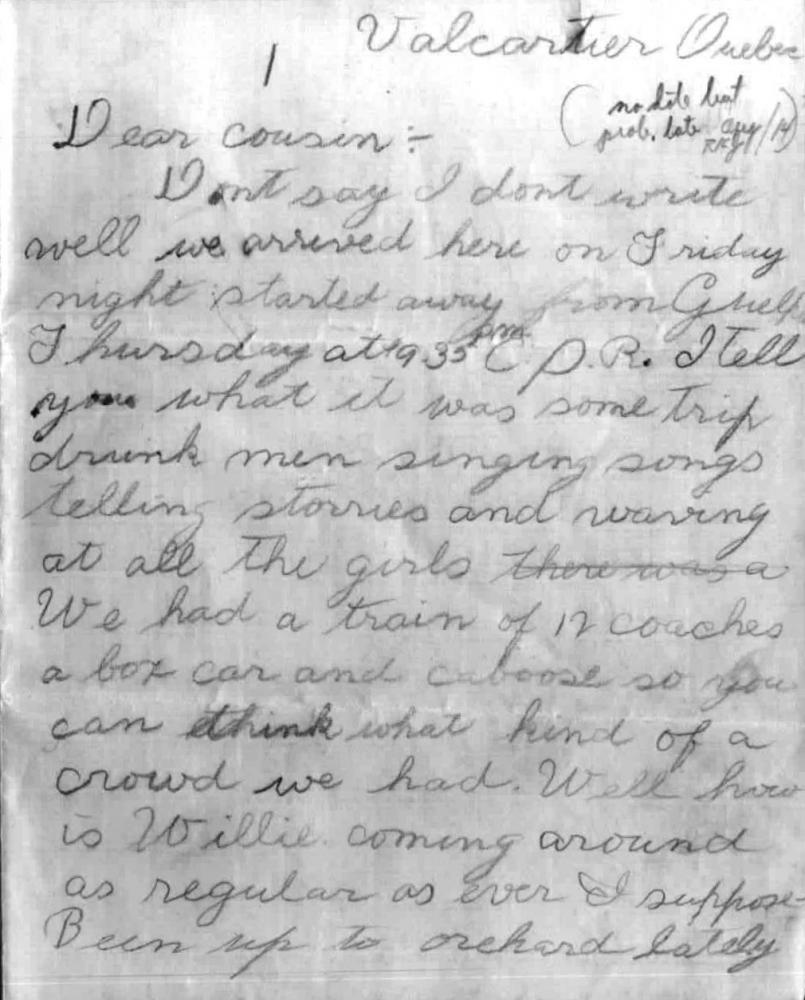 Valcartier Quebec
1
(no date but
prob. late Aug/14)
Dear cousin :-
Dont say I dont write
well we arrived here on Friday
night started away from Guelph
Thursday at 9 35 pm C.P.R. I tell
you what it was some trip
drunk men singing songs
telling storries and waving
at all the girls there was a
We had a train of 12 coaches
a box car and caboose so you
can think what kind of a
crowd we had. Well how
is Willie coming around
as regular as ever I suppose
Been up to orchard lately